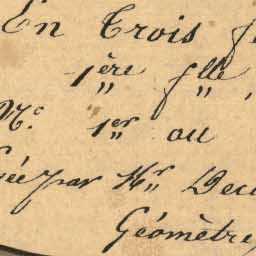 En Trois f
1ère flle
N° 1er ou
ée par Mr Dec
Géomètre